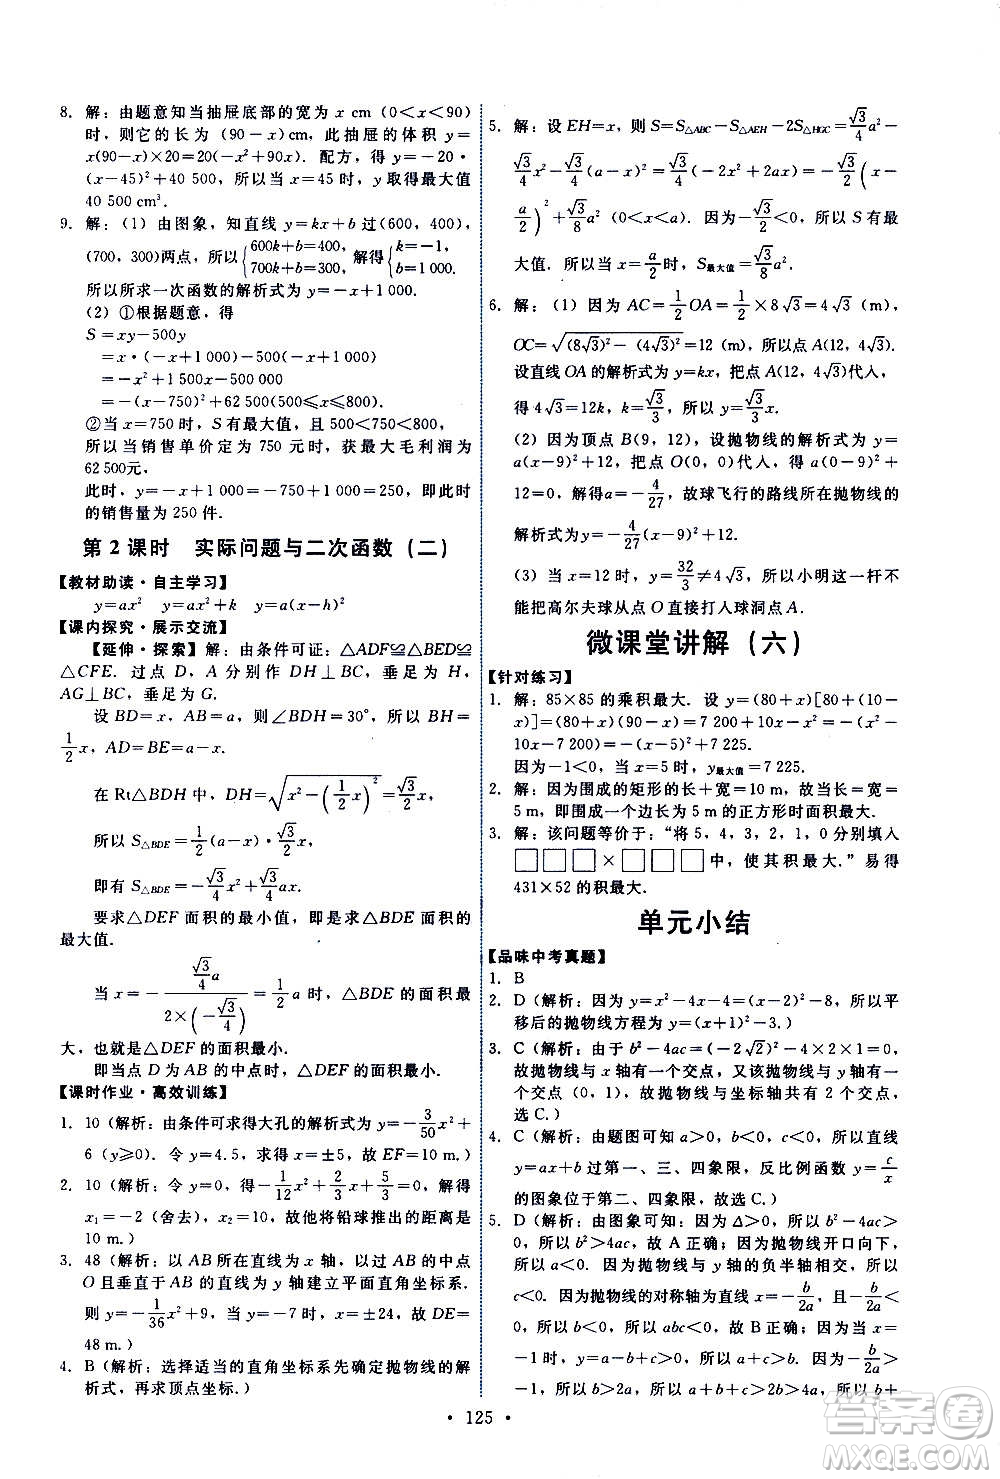 8. 解：由题意知当抽屉底部的宽为 x cm (0＜x＜90)
时，则它的长为 (90－x)cm，此抽屉的体积 y＝
x(90－x)×20＝20(－x²＋90x)．配方，得 y＝－20·
(x－45)²＋40 500，所以当 x＝45 时，y 取得最大值
40 500 cm³．
9. 解：(1) 由图象，知直线 y＝kx＋b 过(600，400)，
(700，300)两点，所以{600k＋b＝400，700k＋b＝300，解得{k＝－1，b＝1 000．
所以所求一次函数的解析式为 y＝－x＋1 000．
(2) ①根据题意，得
S＝xy－500y
＝x·(－x＋1 000)－500(－x＋1 000)
＝－x²＋1 500x－500 000
＝－(x－750)²＋62 500(500≤x≤800)．
②当 x＝750 时，S 有最大值，且 500＜750＜800，
所以当销售单价定为 750 元时，获最大毛利润为
62 500元，
此时，y＝－x＋1 000＝－750＋1 000＝250，即此时
的销售量为 250 件．
第 2 课时　实际问题与二次函数（二）
【教材助读·自主学习】
y＝ax²　y＝ax²＋k　y＝a(x－h)²
【课内探究·展示交流】
【延伸·探索】解：由条件可证：△ADF≌△BED≌
△CFE．过点 D，A 分别作 DH⊥BH，垂足为 H，
AG⊥BH，垂足为 G．
设 BD＝x，AB＝a，则∠BDH＝30°，所以 BH＝
1/2 x，AD＝BE＝a－x．
在 Rt△BDH 中，DH＝√(x²－(1/2 x)²)＝√3/2 x，
所以 S△BDE＝1/2(a－x)·√3/2 x，
即有 S△BDE＝－√3/4 x²＋√3/4 ax．
要求△DEF 面积的最小值，即是求△BDE 面积的
最大值．
当 x＝－(√3/4 a)/(2×(－√3/4))＝1/2 a 时，△BDE 的面积最
大，也就是△DEF 的面积最小．
即当点 D 为 AB 的中点时，△DEF 的面积最小．
【课时作业·高效训练】
1. 10 (解析：由条件可求得大孔的解析式为 y＝－3/50 x²＋
6 (y≥0)．令 y＝4.5，求得 x＝±5，故 EF＝10 m．)
2. 10 (解析：令 y＝0，得－1/12 x²＋2/3 x＋5/3＝0，解得
x₁＝－2 (舍去)，x₂＝10，故他将铅球推出的距离是
10 m．)
3. 48 (解析：以 AB 所在直线为 x 轴，以过 AB 的中点
O 且垂直于 AB 的直线为 y 轴建立平面直角坐标系．
则 y＝－1/36 x²＋9，当 y＝－7 时，x＝±24，故 DE＝
48 m．)
4. B (解析：选择适当的直角坐标系先确定抛物线的解
析式，再求顶点坐标．)
5. 解：设 EH＝x，则 S＝S△ABC－S△AEH－2S△HGC＝√3/4 a²－
√3/4 x²－√3/4 (a－x)²＝√3/4 (－2x²＋2ax)＝－√3/2 (x－
a/2)²＋√3/8 a² (0＜x＜a)．因为－√3/2＜0，所以 S 有最
大值．当 x＝a/2 时，S最大值＝√3/8 a²．
6. 解：(1) 因为 AC＝1/2 OA＝1/2×8√3＝4√3 (m)，
OC＝√((8√3)²－(4√3)²)＝12 (m)，所以点 A(12，4√3)．
设直线 OA 的解析式为 y＝kx，把点 A(12，4√3)代入，
得 4√3＝12k，k＝√3/3，所以 y＝√3/3 x．
(2) 因为顶点 B(9，12)，设抛物线的解析式为 y＝
a(x－9)²＋12，把点 O(0，0)代入，得 a(0－9)²＋
12＝0，解得a＝－4/27，故球飞行的路线所在抛物线的
解析式为 y＝－4/27 (x－9)²＋12．
(3) 当 x＝12 时，y＝32/3≠4√3，所以小明这一杆不
能把高尔夫球从点 O 直接打入球洞点 A．
微课堂讲解（六）
【针对练习】
1. 解：85×85 的乘积最大．设 y＝(80＋x)[80＋(10－
x)]＝(80＋x)(90－x)＝7 200＋10x－x²＝－(x²－
10x－7 200)＝－(x－5)²＋7 225．
因为－1＜0，所以当 x＝5 时，y最大值＝7 225．
2. 解：因为围成的矩形的长＋宽＝10，故当长＝宽＝
5 m，即围成一个边长为 5 m 的正方形时面积最大．
3. 解：该问题等价于：“将 5，4，3，2，1，0 分别填入
□□□×□□□中，使其积最大．”易得
431×52 的积最大．
单元小结
【品味中考真题】
1. B
2. D (解析：因为 y＝x²－4x－4＝(x－2)²－8，所以平
移后的抛物线方程为 y＝(x＋1)²－3．)
3. C (解析：由于 b²－4ac＝(－2√2)²－4×2×1＝0，
故抛物线与 x 轴有一个交点，又该抛物线与 y 轴有一
个交点 (0，1)，故抛物线与坐标轴共有 2 个交点，
选 C．)
4. C (解析：由题图可知 a＞0，b＜0，c＜0，所以直线
y＝ax＋b 过第一、三、四象限，反比例函数 y＝c/x
的图象位于第二、四象限，故选 C．)
5. D (解析：由图象可知：因为 Δ＞0，所以 b²－4ac＞
0，所以 b²＞4ac，故 A 正确；因为抛物线开口向下，
所以 a＜0．因为抛物线与 y 轴的负半轴相交，所以
c＜0．因为抛物线的对称轴为直线 x＝－b/2a，且－b/2a＜
0，所以 b＜0，所以 abc＜0，故 B 正确；当 x＝
－1，所以 b＞2a，所以 a＋b＋c＞2a＋a＋c，所以 b＋
· 125 ·
答案圈
MXQE.COM